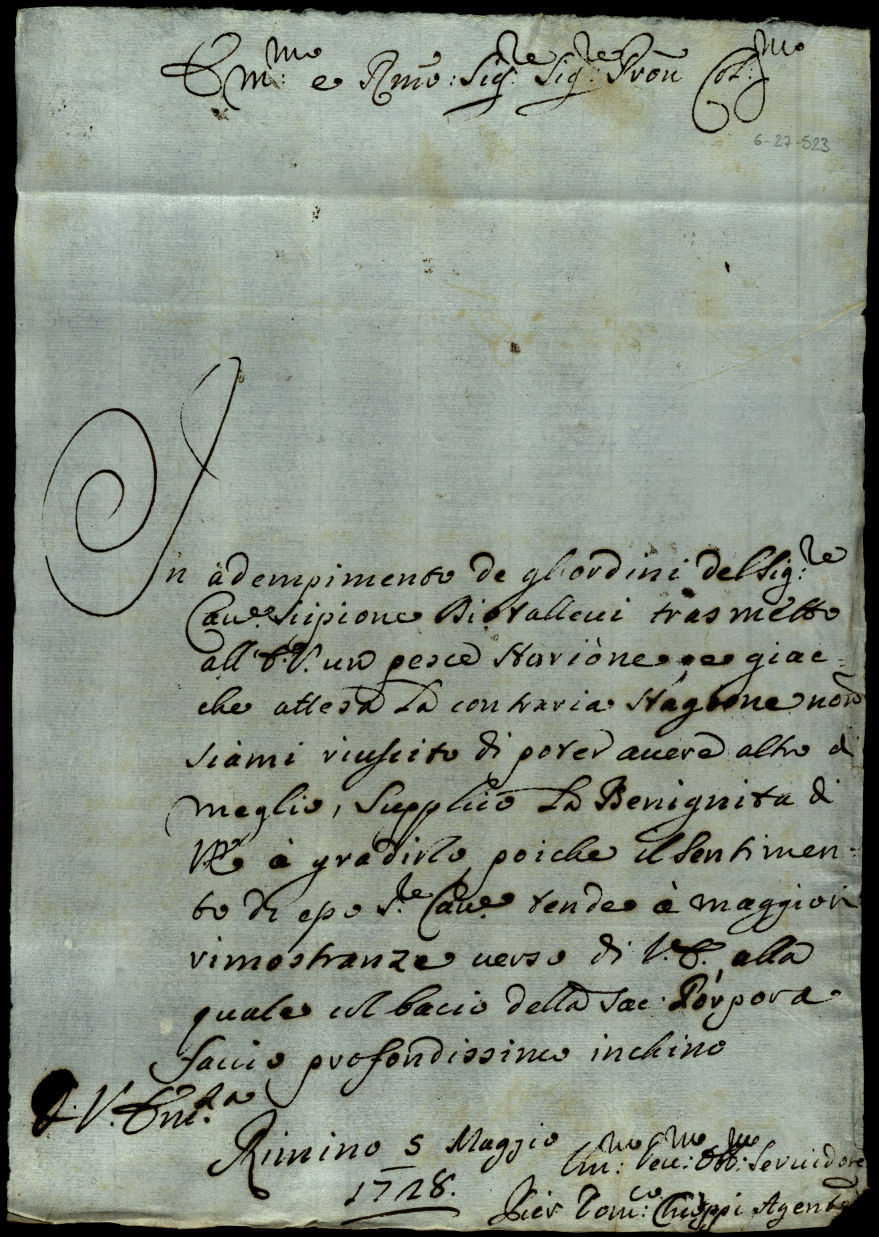 Em:mo e Rmo: Sig:re Sig:re Pron Col:mo
6-27-523
In adempimento de gl'ordini del Sig:re
Cau.e Scipione trasmetto
all' E.V. un pesce Storione, e giac=
che attesa la contraria Stagione non
siami riuscito di poter auere altro di
meglio, Supplico la Benignita di
V.E. à gradirlo, poiche il Sentimen=
to di esso S.re Cau.e tende à maggiori
rimostranze uerso di V.E., alla
quale col bacio della Sac: Porpora
faccio profondissimo inchino
D. V. Em:za
Rimino 5 Maggio
1728.
Um:mo Deu:mo Obb:mo Seruidore
Pier Dom:co Agente